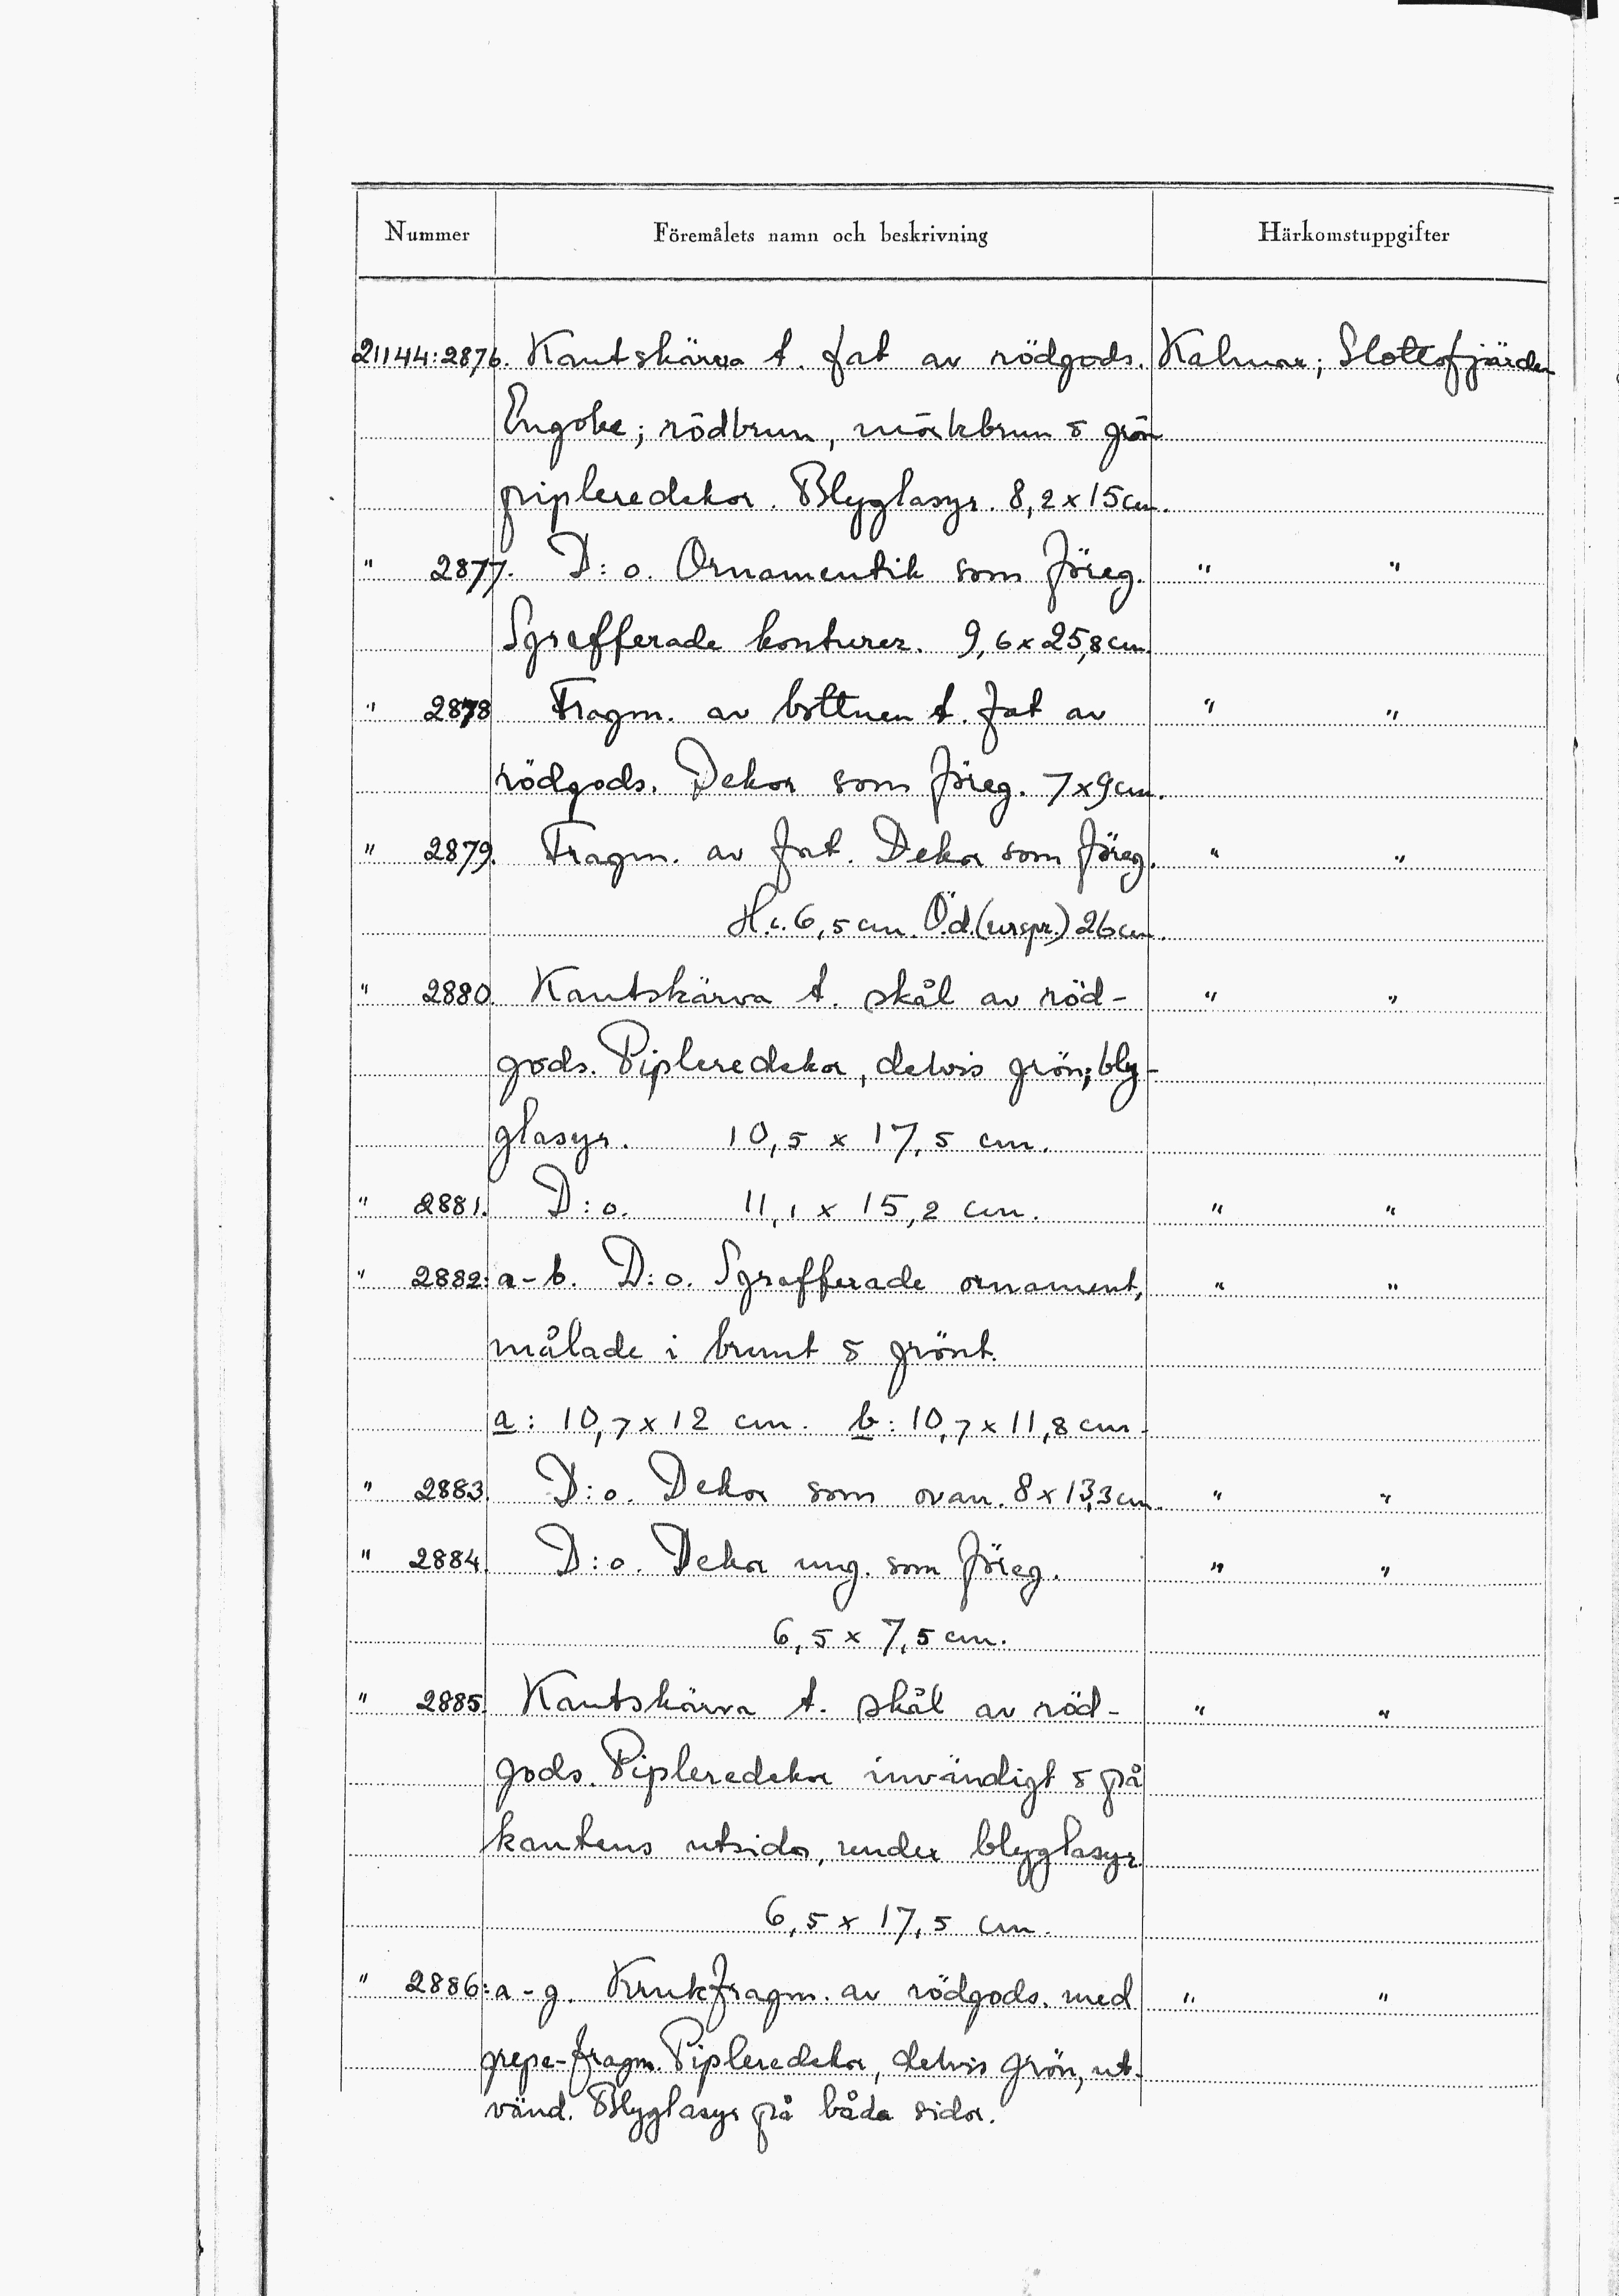 Nummer Föremålets namn och beskrivning Härkomstuppgifter
21144:2876. Kantskärva t. fat av rödgods. Kalmar; Slottsfjärden
Engobe; rödbrun, mörkbrun & grön
pipleredekor. Blyglasyr. 8,2 x 15 cm.
" 2877. D:o. Ornamentik som föreg. " "
Sgrafferade konturer. 9,6 x 25,8 cm.
" 2878 Fragm. av bottnen t. fat av " "
rödgods. Dekor som föreg. 7 x 9 cm.
" 2879. Fragm. av fat. Dekor som föreg. " "
H.: 6,5 cm. Ö.d. (urspr.) 26 cm.
" 2880. Kantskärva t. skål av röd- " "
gods. Pipleredekor, delvis grön; bly-
glasyr. 10,5 x 17,5 cm.
" 2881. D:o. 11,1 x 15,2 cm. " "
" 2882: a-b. D:o. Sgrafferade ornament, " "
målade i brunt & grönt.
a: 10,7 x 12 cm. b: 10,7 x 11,8 cm.
" 2883. D:o. Dekor som ovan. 8 x 13,3 cm. " "
" 2884. D:o. Dekor ung. som föreg. " "
6,5 x 7,5 cm.
" 2885. Kantskärva t. skål av röd- " "
gods. Pipleredekor invändigt & på
kantens utsida, under blyglasyr.
6,5 x 17,5 cm.
" 2886: a-g. Krukfragm. av rödgods. med " "
grepe-fragm. Pipleredekor, delvis grön, ut-
vänd. Blyglasyr på båda sidor.